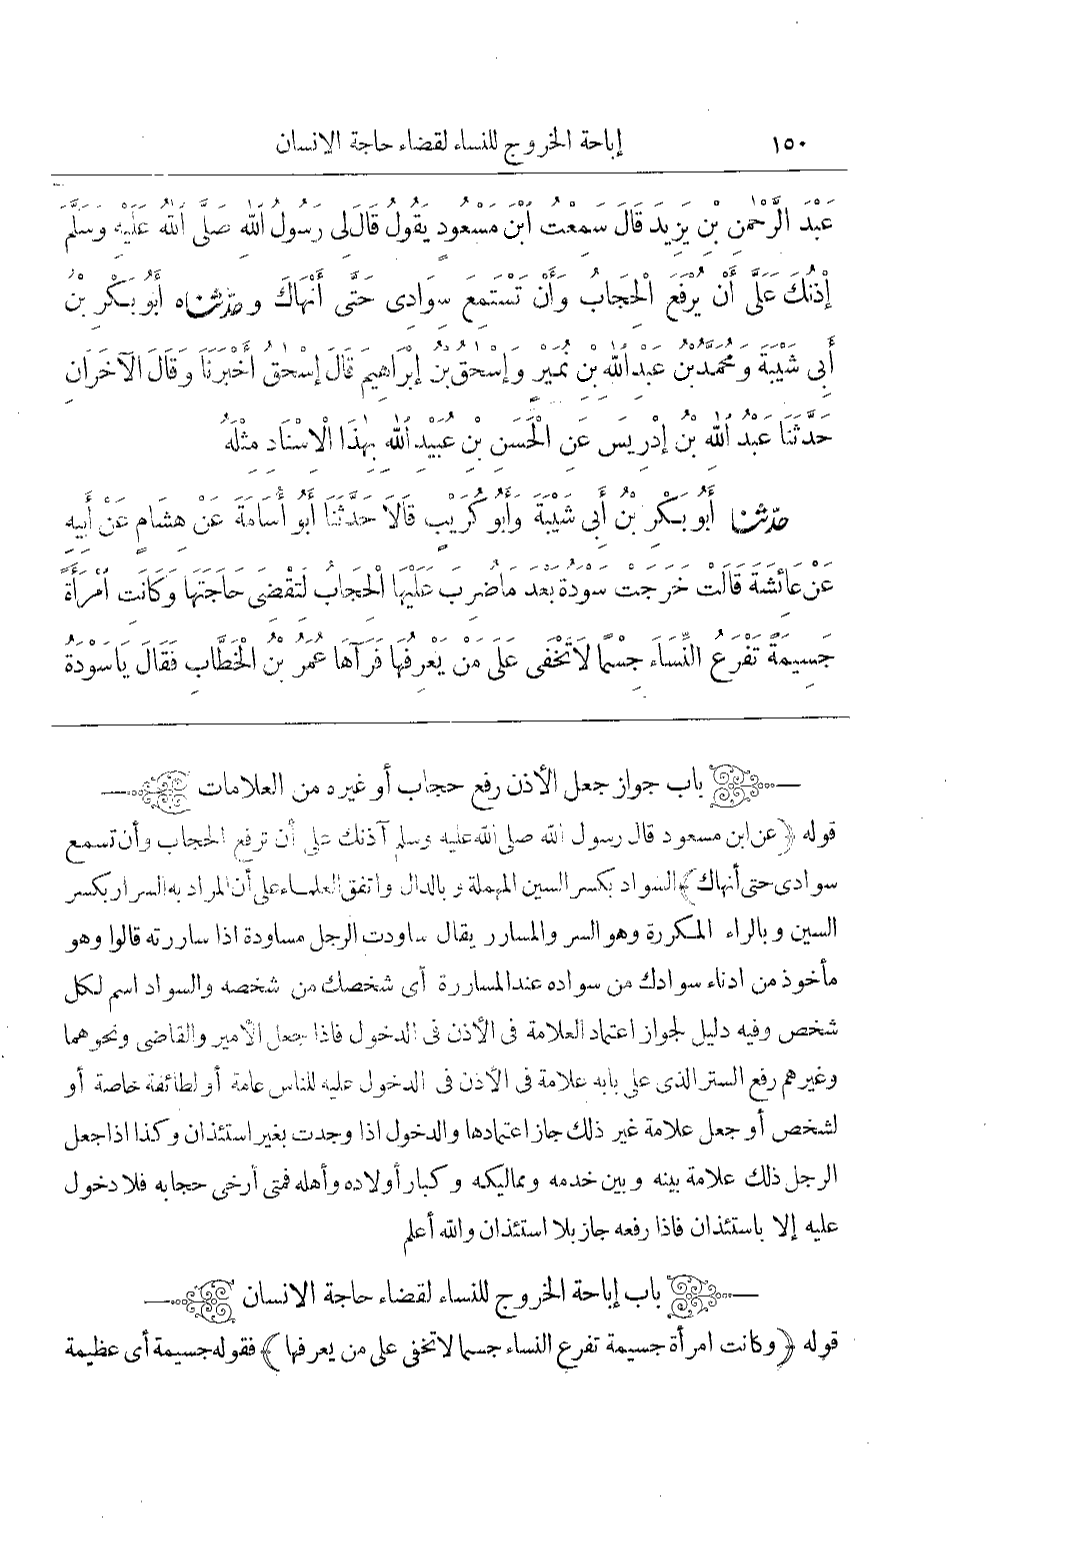 ١٥٠ إباحة الخروج للنساء لقضاء حاجة الانسان
عَبْدَ الرَّحْمٰنِ بْنِ يَزِيدَ قَالَ سَمِعْتُ ابْنَ مَسْعُودٍ يَقُولُ قَالَ لِى رَسُولُ اللهِ صَلَّى اللهُ عَلَيْهِ وَسَلَّمَ
إِذْنُكَ عَلَىَّ أَنْ يُرْفَعَ الْحِجَابُ وَأَنْ تَسْتَمِعَ سِوَادِى حَتَّى أَنْهَاكَ و حَدَّثَنَاه أَبُو بَكْرِ بْنُ
أَبِى شَيْبَةَ وَمُحَمَّدُ بْنُ عَبْدِ اللهِ بْنِ نُمَيْرٍ وَإِسْحٰقُ بْنُ إِبْرَاهِيمَ قَالَ إِسْحٰقُ أَخْبَرَنَا وَقَالَ الْآخَرَانِ
حَدَّثَنَا عَبْدُ اللهِ بْنُ إِدْرِيسَ عَنِ الْحَسَنِ بْنِ عُبَيْدِ اللهِ بِهٰذَا الْاِسْنَادِ مِثْلَهُ
حدّثنا أَبُو بَكْرِ بْنُ أَبِى شَيْبَةَ وَأَبُو كُرَيْبٍ قَالَا حَدَّثَنَا أَبُو أُسَامَةَ عَنْ هِشَامٍ عَنْ أَبِيهِ
عَنْ عَائِشَةَ قَالَتْ خَرَجَتْ سَوْدَةُ بَعْدَ مَا ضُرِبَ عَلَيْهَا الْحِجَابُ لِتَقْضِىَ حَاجَتَهَا وَكَانَتِ امْرَأَةً
جَسِيمَةً تَفْرَعُ النِّسَاءَ جِسْمًا لَا تَخْفَى عَلَى مَنْ يَعْرِفُهَا فَرَآهَا عُمَرُ بْنُ الْخَطَّابِ فَقَالَ يَا سَوْدَةُ
باب جواز جعل الأذن رفع حجاب أو غيره من العلامات
قوله ﴿عن ابن مسعود قال رسول الله صلى الله عليه وسلم آذنك على أن ترفع الحجاب وأن تسمع
سوادى حتى أنهاك﴾ السواد بكسر السين المهملة وبالدال واتفق العلماء على أن المراد به السرار بكسر
السين وبالراء المكررة وهو السر والمسارر يقال ساودت الرجل مساودة اذا ساررته قالوا وهو
مأخوذ من ادناء سوادك من سواده عند المساررة أى شخصك من شخصه والسواد اسم لكل
شخص وفيه دليل لجواز اعتماد العلامة فى الأذن فى الدخول فاذا جعل الأمير والقاضى ونحوهما
وغيرهم رفع الستر الذى على بابه علامة فى الأذن فى الدخول عليه للناس عامة أو لطائفة خاصة أو
لشخص أو جعل علامة غير ذلك جاز اعتمادها والدخول اذا وجدت بغير استئذان وكذا اذا جعل
الرجل ذلك علامة بينه وبين خدمه ومماليكه وكبار أولاده وأهله فمتى أرخى حجابه فلا دخول
عليه إلا باستئذان فاذا رفعه جاز بلا استئذان والله أعلم
باب إباحة الخروج للنساء لقضاء حاجة الانسان
قوله ﴿وكانت امرأة جسيمة تفرع النساء جسما لا تخفى على من يعرفها﴾ فقوله جسيمة أى عظيمة